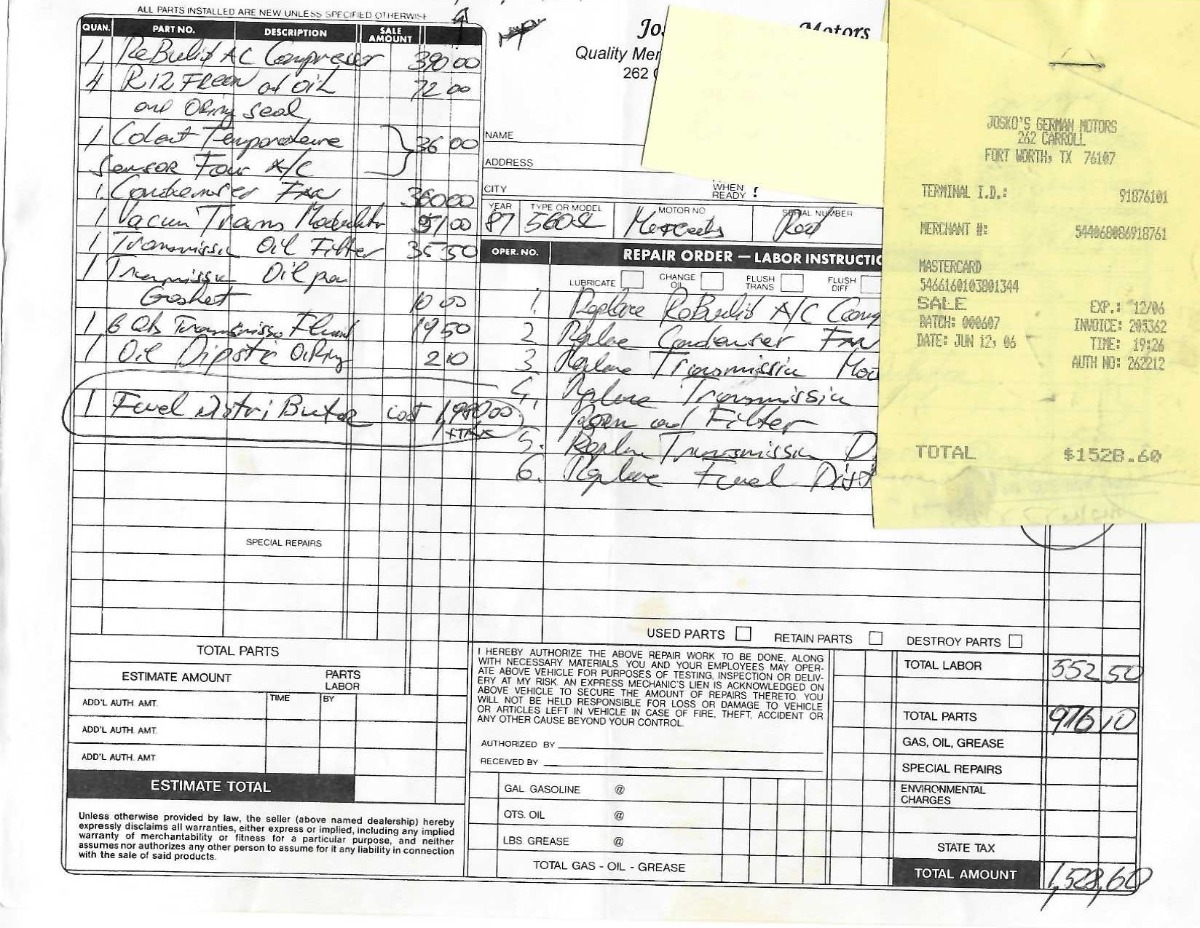 ALL PARTS INSTALLED ARE NEW UNLESS SPECIFIED OTHERWISE
QUAN. PART NO. DESCRIPTION SALE AMOUNT
1 ReBuilt AC Compresser 390 00
4 R12 FREON and OIL 72 00
and ORing seal
1 Colant Temporateure 36 00
Sensor Four A/C
1 Condenser Fan 360 00
1 Vacum Trans Modulator 51 00
1 Transmissin Oil Filter 35 50
1 Transmissin Oil pan
Gasket 10 00
1 6 Qts Transmissio Fluid 19 50
1 Oil Dipstic ORing 2 10
1 Fuel Distri Butor cost 1,980 00
+ TAX
SPECIAL REPAIRS
TOTAL PARTS
ESTIMATE AMOUNT PARTS
LABOR
ADD'L AUTH. AMT. TIME BY
ADD'L AUTH. AMT.
ADD'L AUTH. AMT
ESTIMATE TOTAL
Unless otherwise provided by law, the seller (above named dealership) hereby
expressly disclaims all warranties, either express or implied, including any implied
warranty of merchantability or fitness for a particular purpose, and neither
assumes nor authorizes any other person to assume for it any liability in connection
with the sale of said products.
Motors
Quality Mer
262
NAME
ADDRESS
CITY
WHEN
READY
YEAR TYPE OR MODEL MOTOR NO SERIAL NUMBER
87 560SL Mercedes Red
OPER. NO. REPAIR ORDER — LABOR INSTRUC
LUBRICATE CHANGE OIL FLUSH TRANS FLUSH DIFF
1. Replace ReBuilt A/C Comp
2. Replace Condenser Fan
3. Replace Transmissin Mod
4. Replace Transmissin
and Filter
5. Replace Transmissin D
6. Replace Fuel Dist
USED PARTS RETAIN PARTS DESTROY PARTS
I HEREBY AUTHORIZE THE ABOVE REPAIR WORK TO BE DONE, ALONG
WITH NECESSARY MATERIALS. YOU AND YOUR EMPLOYEES MAY OPER-
ATE ABOVE VEHICLE FOR PURPOSES OF TESTING, INSPECTION OR DELIV-
ERY AT MY RISK. AN EXPRESS MECHANIC'S LIEN IS ACKNOWLEDGED ON
ABOVE VEHICLE TO SECURE THE AMOUNT OF REPAIRS THERETO. YOU
WILL NOT BE HELD RESPONSIBLE FOR LOSS OR DAMAGE TO VEHICLE
OR ARTICLES LEFT IN VEHICLE IN CASE OF FIRE, THEFT, ACCIDENT OR
ANY OTHER CAUSE BEYOND YOUR CONTROL.
AUTHORIZED BY
RECEIVED BY
GAL GASOLINE @
QTS. OIL @
LBS GREASE @
TOTAL GAS - OIL - GREASE
TOTAL LABOR 552 50
TOTAL PARTS 976 10
GAS, OIL, GREASE
SPECIAL REPAIRS
ENVIRONMENTAL
CHARGES
STATE TAX
TOTAL AMOUNT 1,528,60
JOSKO'S GERMAN MOTORS
262 CARROLL
FORT WORTH, TX 76107
TERMINAL I.D.: 91876101
MERCHANT #: 544068086918761
MASTERCARD
5466160103801344
SALE EXP.: 12/06
BATCH: 000607 INVOICE: 205362
DATE: JUN 12, 06 TIME: 19:26
AUTH NO: 262212
TOTAL $1528.60